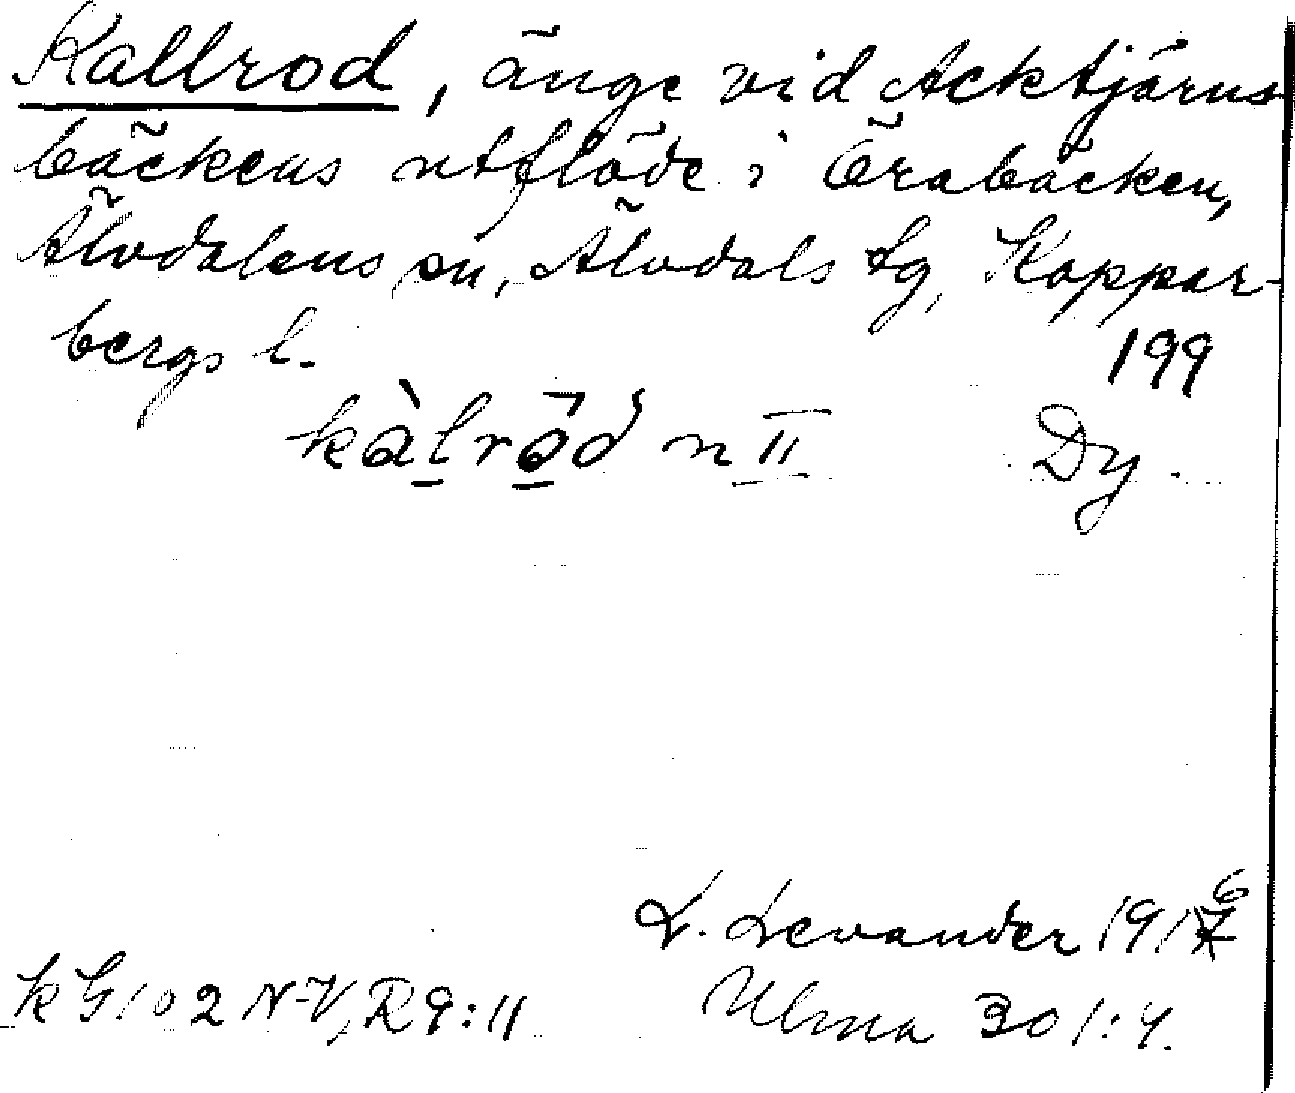 Kallrod, änge vid Acktjärns-
bäckens utflöde i Örabäcken,
Älvdalens sn, Älvdals tg, Koppar-
bergs l.
199
kàlrōd n II Dy.
L. Levander 1916
kG102 N-V, R9:11 Ulma 301:4.